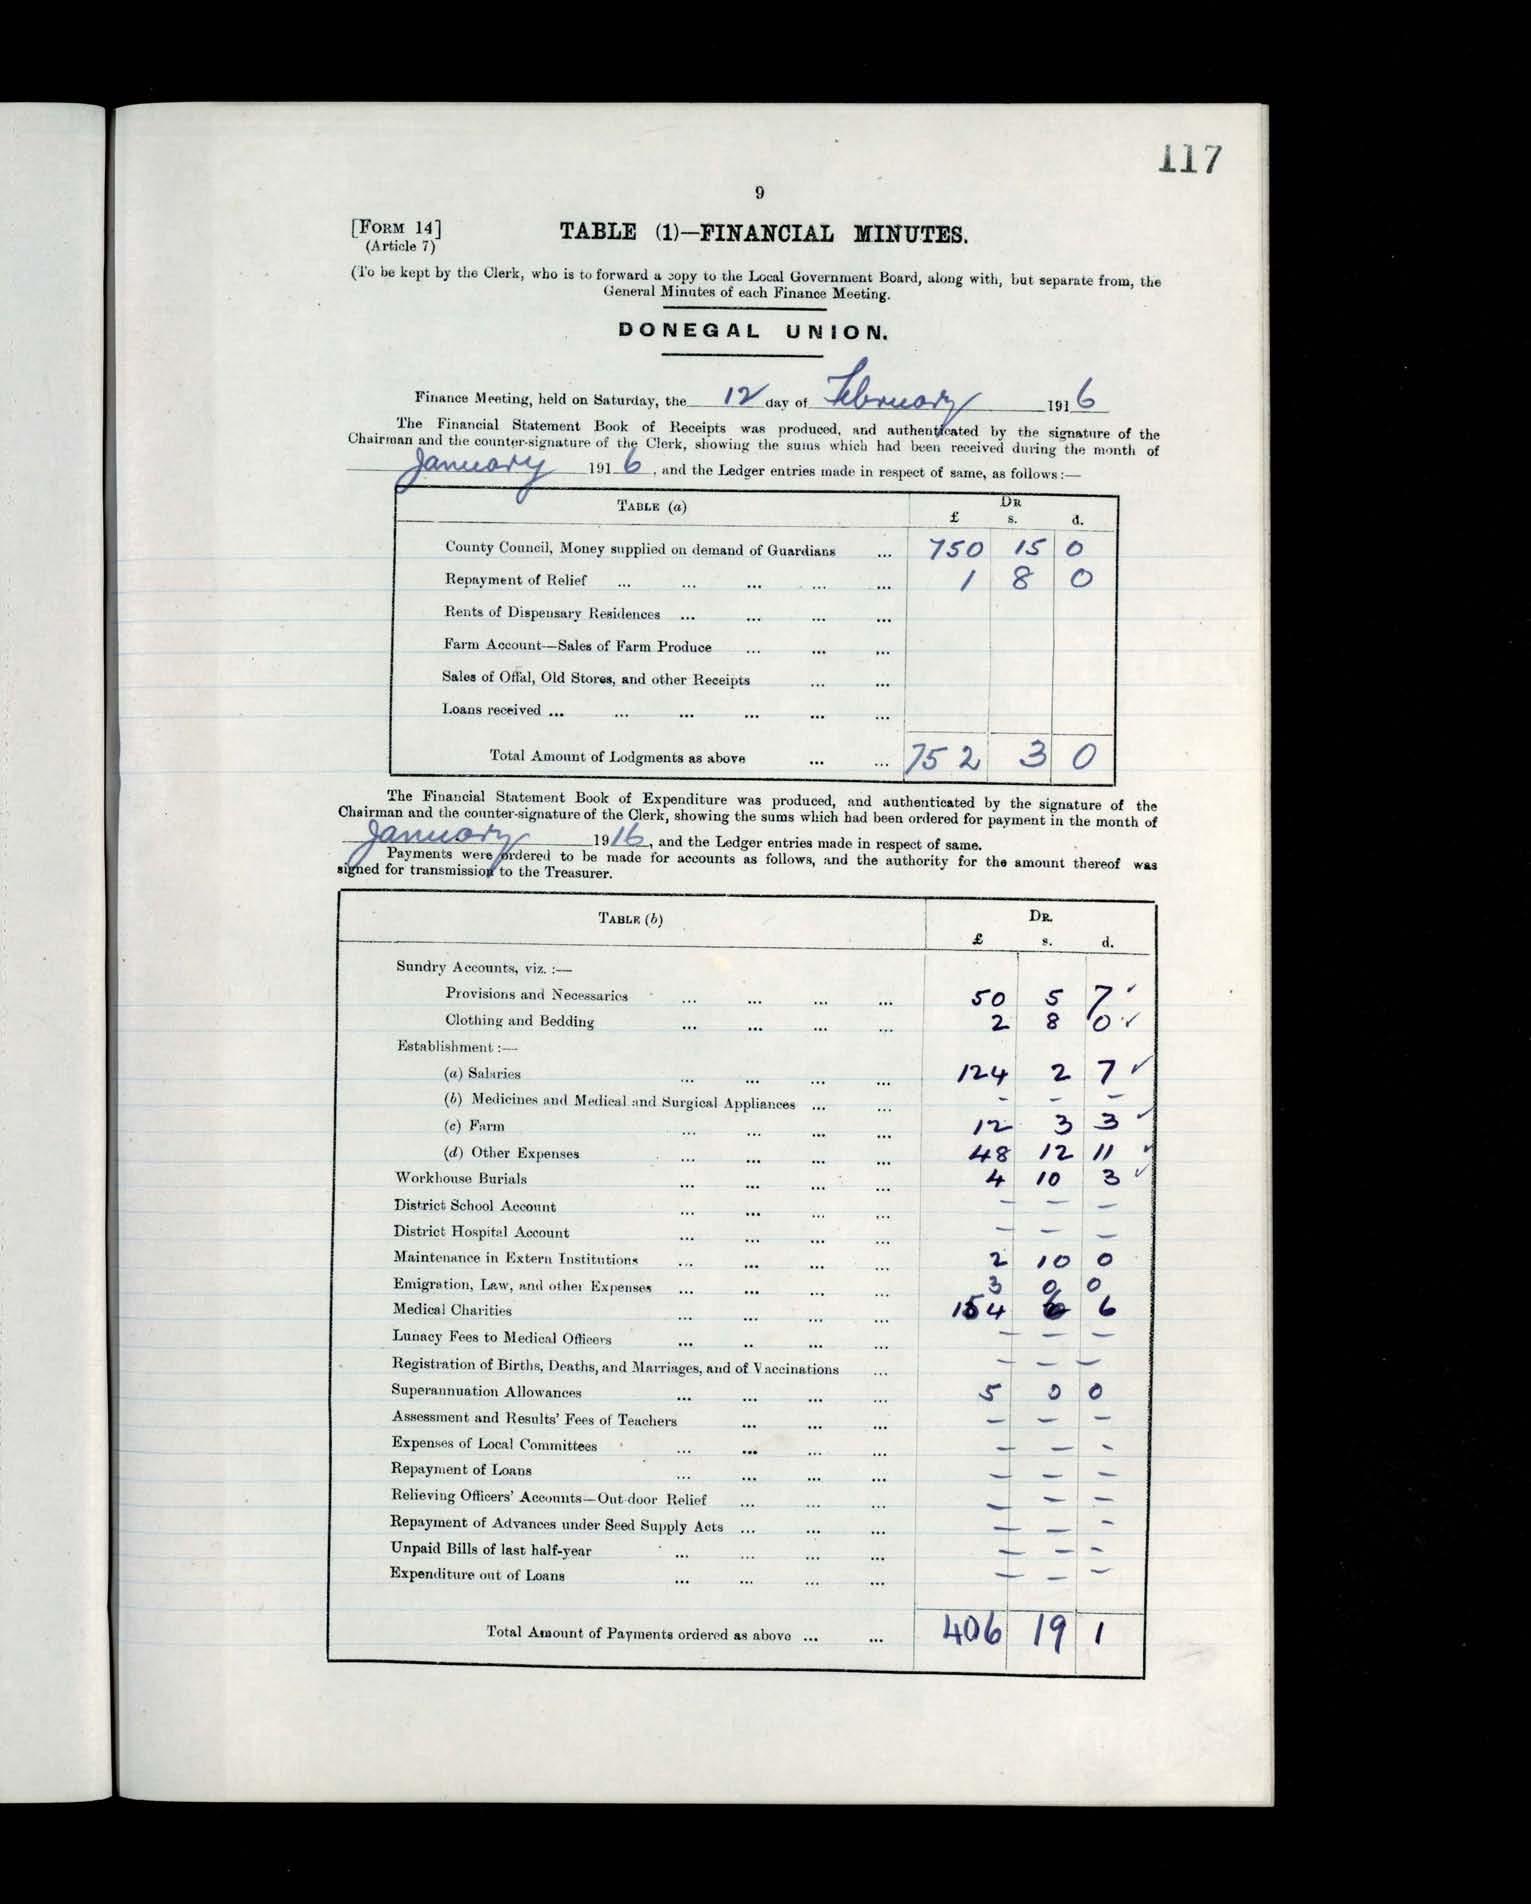 117
9
[FORM 14]
(Article 7)
TABLE (1)—FINANCIAL MINUTES.
(To be kept by the Clerk, who is to forward a copy to the Local Government Board, along with, but separate from, the
General Minutes of each Finance Meeting.
DONEGAL UNION.
Finance Meeting, held on Saturday, the 12 day of February 1916
The Financial Statement Book of Receipts was produced, and authenticated by the signature of the
Chairman and the counter-signature of the Clerk, showing the sums which had been received during the month of
January 1916, and the Ledger entries made in respect of same, as follows:—
TABLE (a) DR
£ s. d.
County Council, Money supplied on demand of Guardians ... 750 15 0
Repayment of Relief ... ... ... ... ... 1 8 0
Rents of Dispensary Residences ... ... ... ...
Farm Account—Sales of Farm Produce ... ... ...
Sales of Offal, Old Stores, and other Receipts ... ...
Loans received ... ... ... ... ... ...
Total Amount of Lodgments as above ... ... 752 3 0
The Financial Statement Book of Expenditure was produced, and authenticated by the signature of the
Chairman and the counter-signature of the Clerk, showing the sums which had been ordered for payment in the month of
January 1916, and the Ledger entries made in respect of same.
Payments were ordered to be made for accounts as follows, and the authority for the amount thereof was
signed for transmission to the Treasurer.
TABLE (b) DR.
£ s. d.
Sundry Accounts, viz. :—
Provisions and Necessaries ... ... ... ... 50 5 7 ✓
Clothing and Bedding ... ... ... ... 2 8 0 ✓
Establishment :—
(a) Salaries ... ... ... ... 124 2 7 ✓
(b) Medicines and Medical and Surgical Appliances ... ... – – –
(c) Farm ... ... ... ... 12 3 3 ✓
(d) Other Expenses ... ... ... ... 48 12 11 ✓
Workhouse Burials ... ... ... ... 4 10 3 ✓
District School Account ... ... ... ... – – –
District Hospital Account ... ... ... ... – – –
Maintenance in Extern Institutions ... ... ... ... 2 10 0
Emigration, Law, and other Expenses ... ... ... ... 3 0 0
Medical Charities ... ... ... ... 154 6 6
Lunacy Fees to Medical Officers ... .. ... ... – – –
Registration of Births, Deaths, and Marriages, and of Vaccinations ... – – –
Superannuation Allowances ... ... ... ... 5 0 0
Assessment and Results' Fees of Teachers ... ... ... – – –
Expenses of Local Committees ... ... ... ... – – –
Repayment of Loans ... ... ... ... – – –
Relieving Officers' Accounts—Out-door Relief ... ... ... – – –
Repayment of Advances under Seed Supply Acts ... ... ... – – –
Unpaid Bills of last half-year ... ... ... ... – – –
Expenditure out of Loans ... ... ... ... – – –
Total Amount of Payments ordered as above ... ... 406 19 1